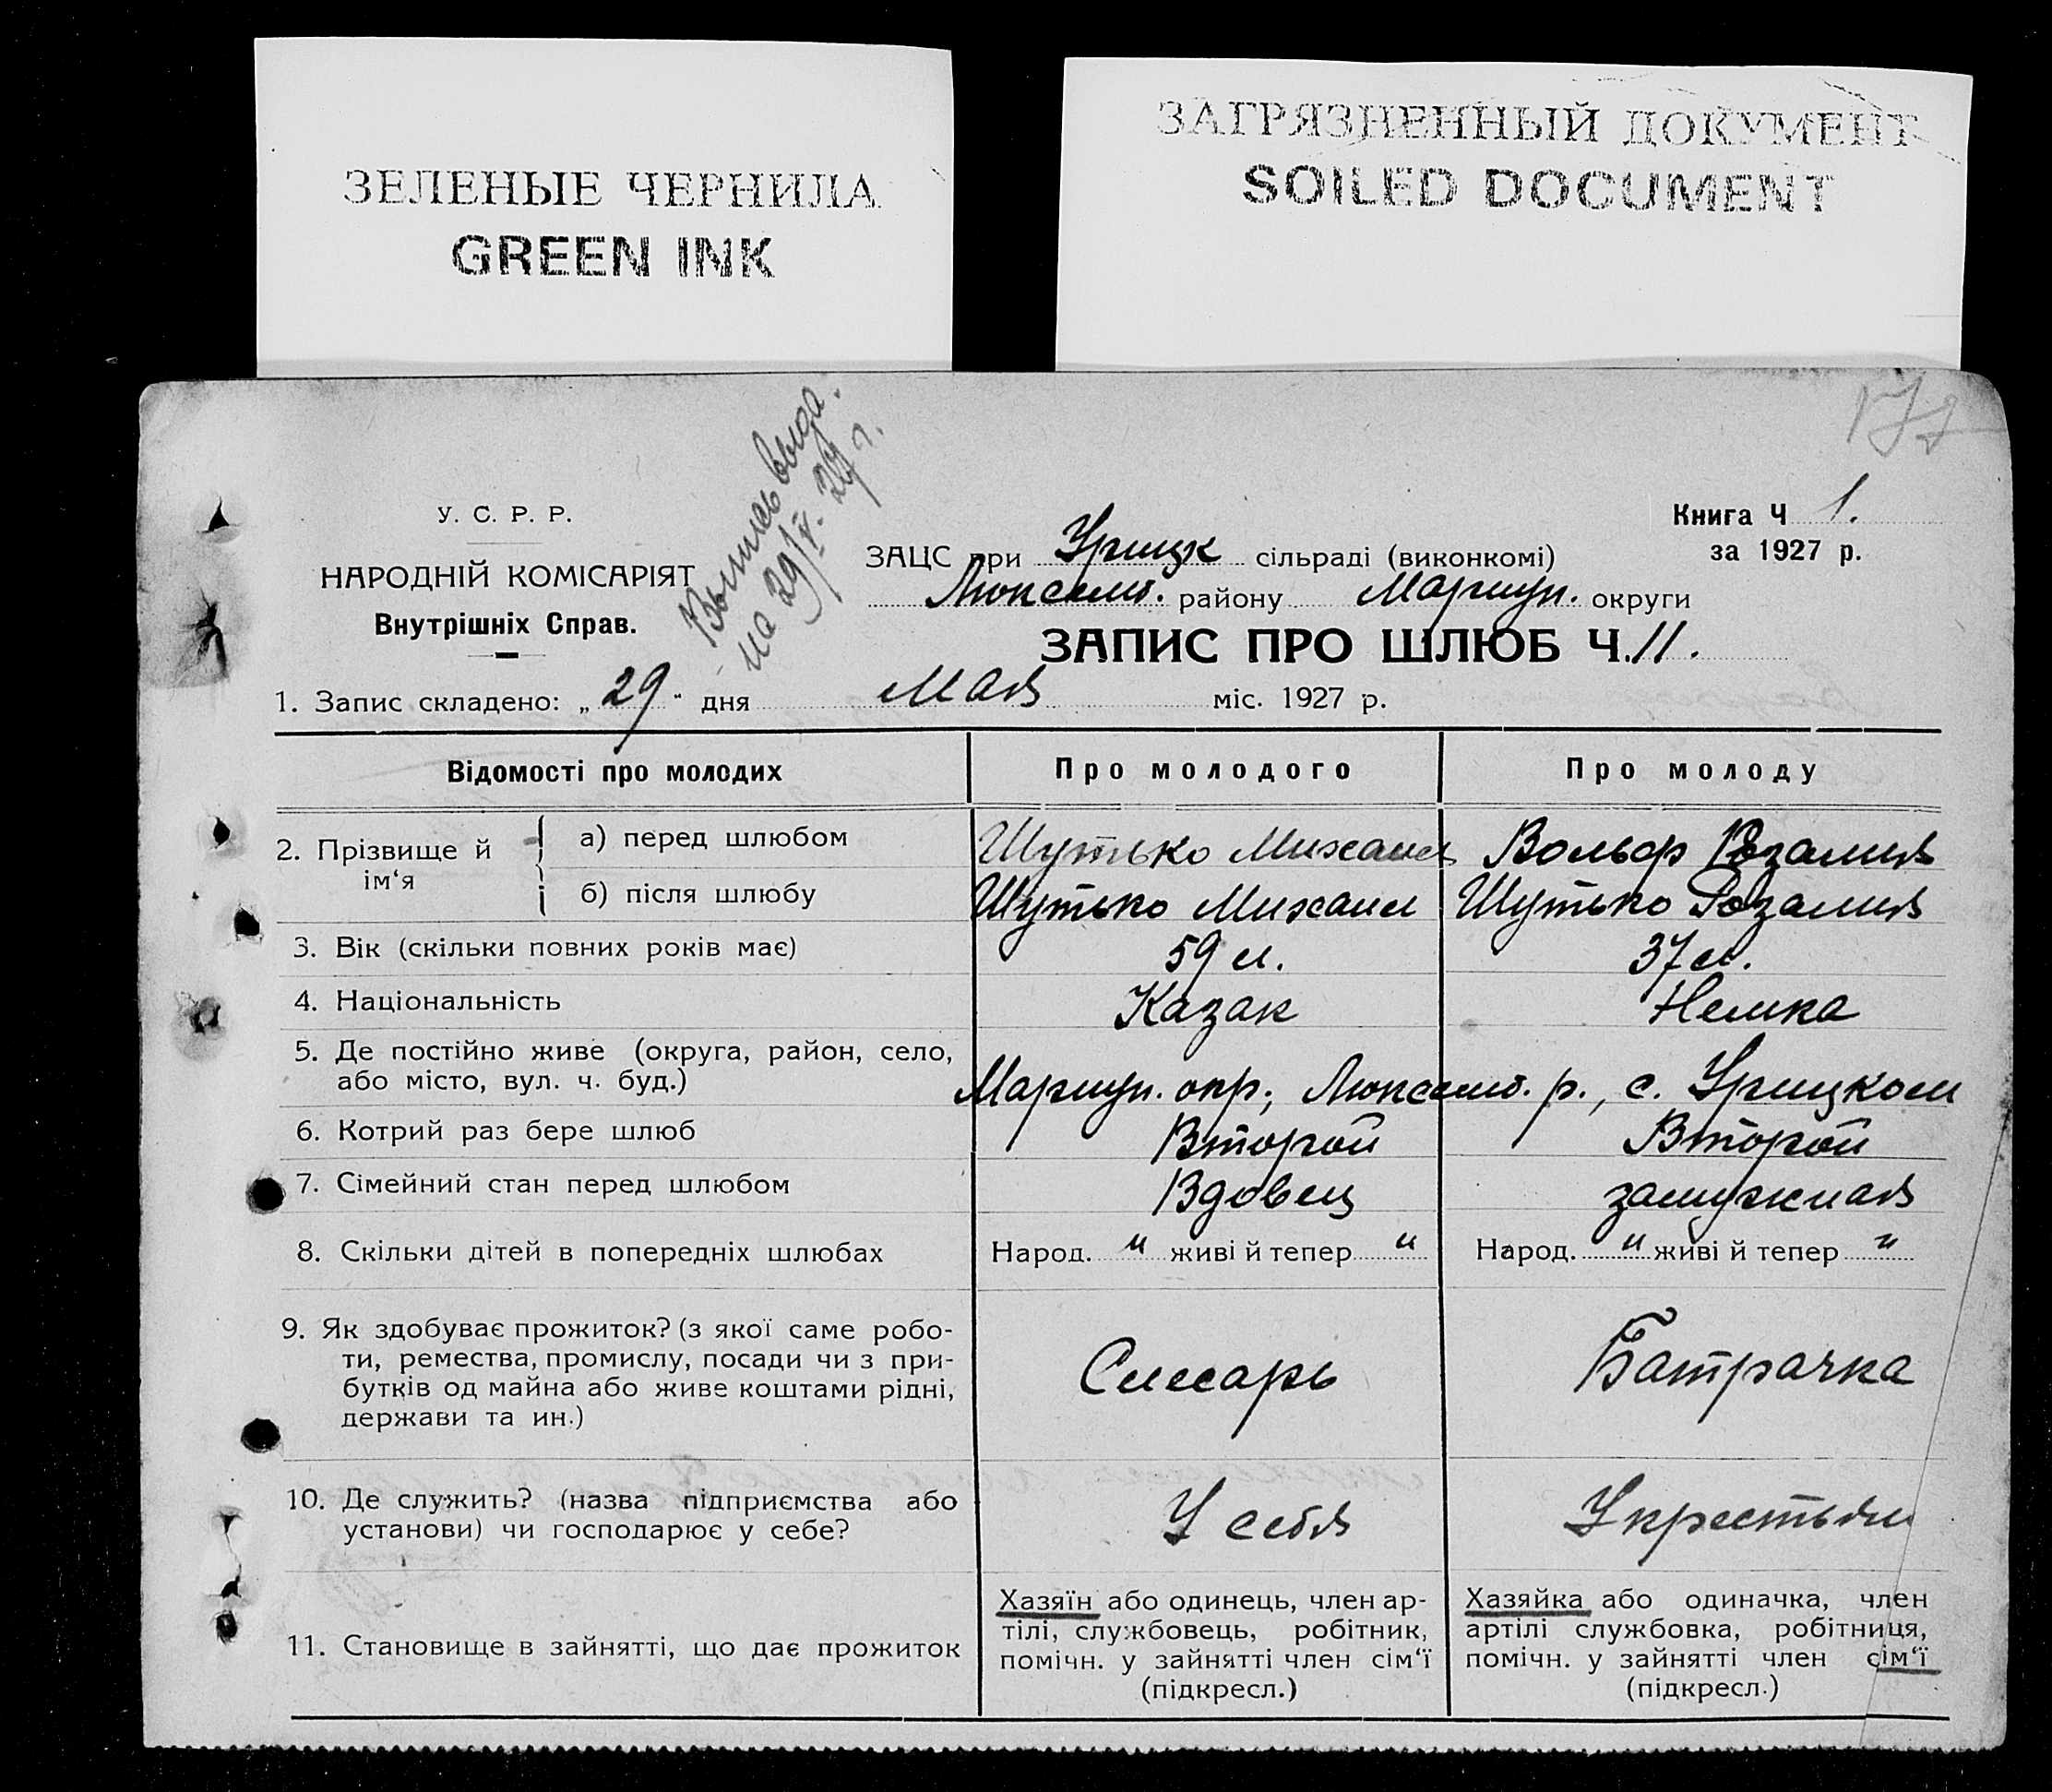 ЗЕЛЕНЫЕ ЧЕРНИЛА
GREEN INK
ЗАГРЯЗНЕННЫЙ ДОКУМЕНТ
SOILED DOCUMENT
Выпись выда.
на 29/V. 27 г.
У. С. Р. Р.
НАРОДНІЙ КОМІСАРІЯТ
Внутрішніх Справ.
Книга Ч 1.
за 1927 р.
ЗАЦС при Урицк сільраді (виконкомі)
Люксемб. району Мариуп. округи
ЗАПИС ПРО ШЛЮБ Ч. 11.
1. Запис складено: „29" дня Мая міс. 1927 р.
Відомості про молодих
Про молодого
Про молоду
2. Прізвище й ім‘я
а) перед шлюбом
Шутько Михаил
Вольф Розалия
б) після шлюбу
Шутько Михаил
Шутько Розалия
3. Вік (скільки повних років має)
59 л.
37 л.
4. Національність
Казак
Немка
5. Де постійно живе (округа, район, село,
або місто, вул. ч. буд.)
Мариуп. окр., Люксемб. р., с. Урицком
6. Котрий раз бере шлюб
Второй
Второй
7. Сімейний стан перед шлюбом
Вдовец
замужная
8. Скільки дітей в попередніх шлюбах
Народ. " живі й тепер "
Народ. " живі й тепер "
9. Як здобуває прожиток? (з якої саме робо-
ти, ремества, промислу, посади чи з при-
бутків од майна або живе коштами рідні,
держави та ин.)
Слесарь
Батрачка
10. Де служить? (назва підприємства або
установи) чи господарює у себе?
У себя
У крестьян
11. Становище в зайнятті, що дає прожиток
Хазяїн або одинець, член ар-
тілі, службовець, робітник,
помічн. у зайнятті член сім‘ї
(підкресл.)
Хазяйка або одиначка, член
артілі службовка, робітниця,
помічн. у зайнятті член сім‘ї
(підкресл.)